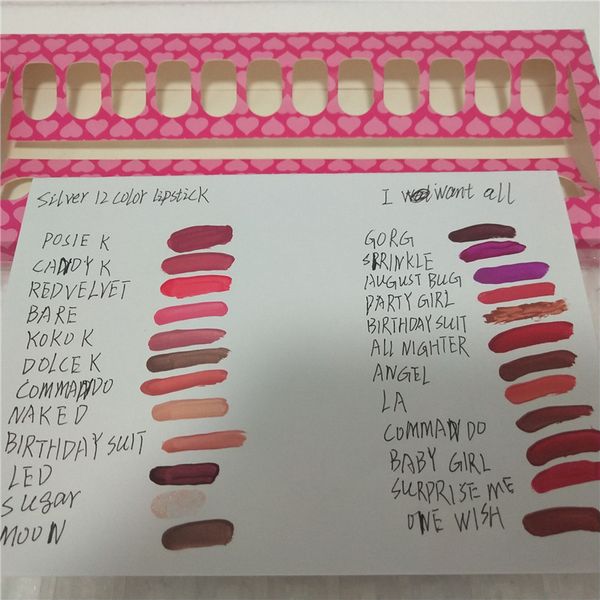 Silver 12 color lipstick
POSIE K
CANDY K
REDVELVET
BARE
KOKO K
DOLCE K
COMMANDO
NAKED
BIRTHDAY SUIT
LEO
Sugar
MOON
I want all
GORG
SPRINKLE
AUGUST BUG
PARTY GIRL
BIRTHDAY SUIT
ALL NIGHTER
ANGEL
LA
COMMANDO
BABY GIRL
SURPRISE ME
ONE WISH